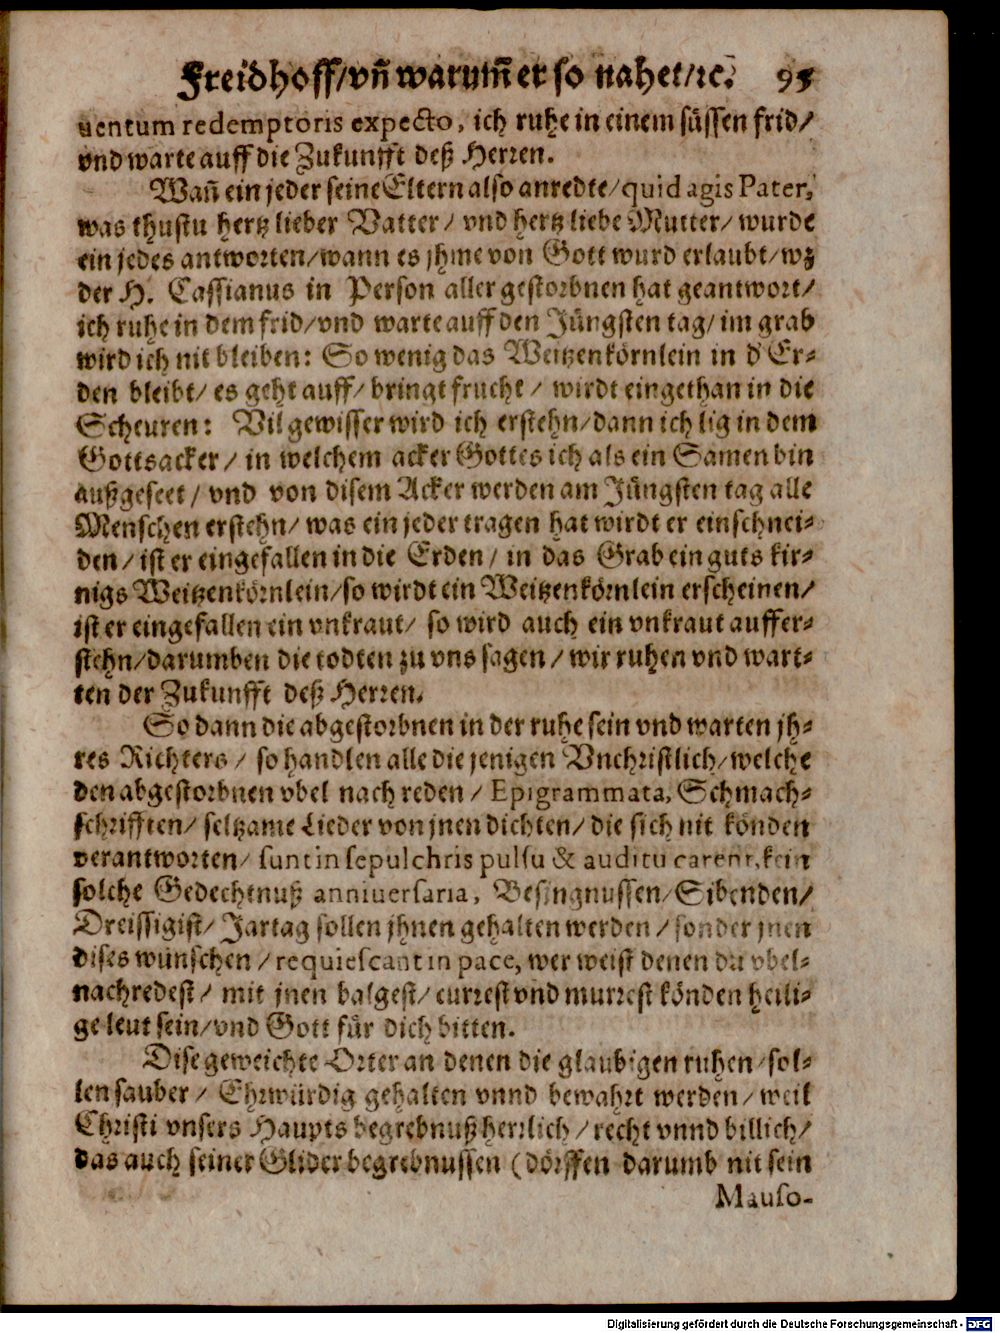 Freidhoff/vñ warum̃ er so nahet/ꝛc. 95
uentum redemptoris expecto, ich ruhe in einem süssen frid/
vnd warte auff die Zukunfft deß Herren.
Wañ ein jeder seine Eltern also anredte/quid agis Pater,
was thustu hertz lieber Vatter/ vnd hertz liebe Mutter/ wurde
ein jedes antworten/wann es jhme von Gott wurd erlaubt/wz
der H. Cassianus in Person aller gestorbnen hat geantwort/
ich ruhe in dem frid/vnd warte auff den Jüngsten tag/ im grab
wird ich nit bleiben: So wenig das Weitzenkörnlein in d' Er-
den bleibt/ es geht auff/ bringt frucht / wirdt eingethan in die
Scheuren: Vil gewisser wird ich erstehn/dann ich lig in dem
Gottsacker/ in welchem acker Gottes ich als ein Samen bin
außgeseet/ vnd von disem Acker werden am Jüngsten tag alle
Menschen erstehn/ was ein jeder tragen hat wirdt er einschnei-
den/ ist er eingefallen in die Erden/ in das Grab ein guts kir-
nigs Weitzenkörnlein/so wirdt ein Weitzenkörnlein erscheinen/
ist er eingefallen ein vnkraut/ so wird auch ein vnkraut auffer-
stehn/darumben die todten zu vns sagen/ wir ruhen vnd wart-
ten der Zukunfft deß Herren.
So dann die abgestorbnen in der ruhe sein vnd warten jh-
res Richters/ so handlen alle die jenigen Vnchristlich/welche
den abgestorbnen vbel nach reden/ Epigrammata, Schmach-
schrifften/ seltzame Lieder von jnen dichten/ die sich nit könden
verantworten/ sunt in sepulchris pulsu & auditu carent, kein
solche Gedechtnuß anniuersaria, Besingnussen/Sibenden/
Dreissigist/ Jartag sollen jhnen gehalten werden/ sonder jnen
dises wünschen/requiescant in pace, wer weist denen du vbel-
nachredest/ mit jnen balgest/ currest vnd murrest könden heili-
ge leut sein/vnd Gott für dich bitten.
Dise geweichte Orter an denen die glaubigen ruhen/sol-
len sauber/ Ehrwürdig gehalten vnnd bewahrt werden/ weil
Christi vnsers Haupts begrebnuß herrlich/ recht vnnd billich/
das auch seiner Glider begrebnussen (dörffen darumb nit sein
Mauso-
Digitalisierung gefördert durch die Deutsche Forschungsgemeinschaft - DFG